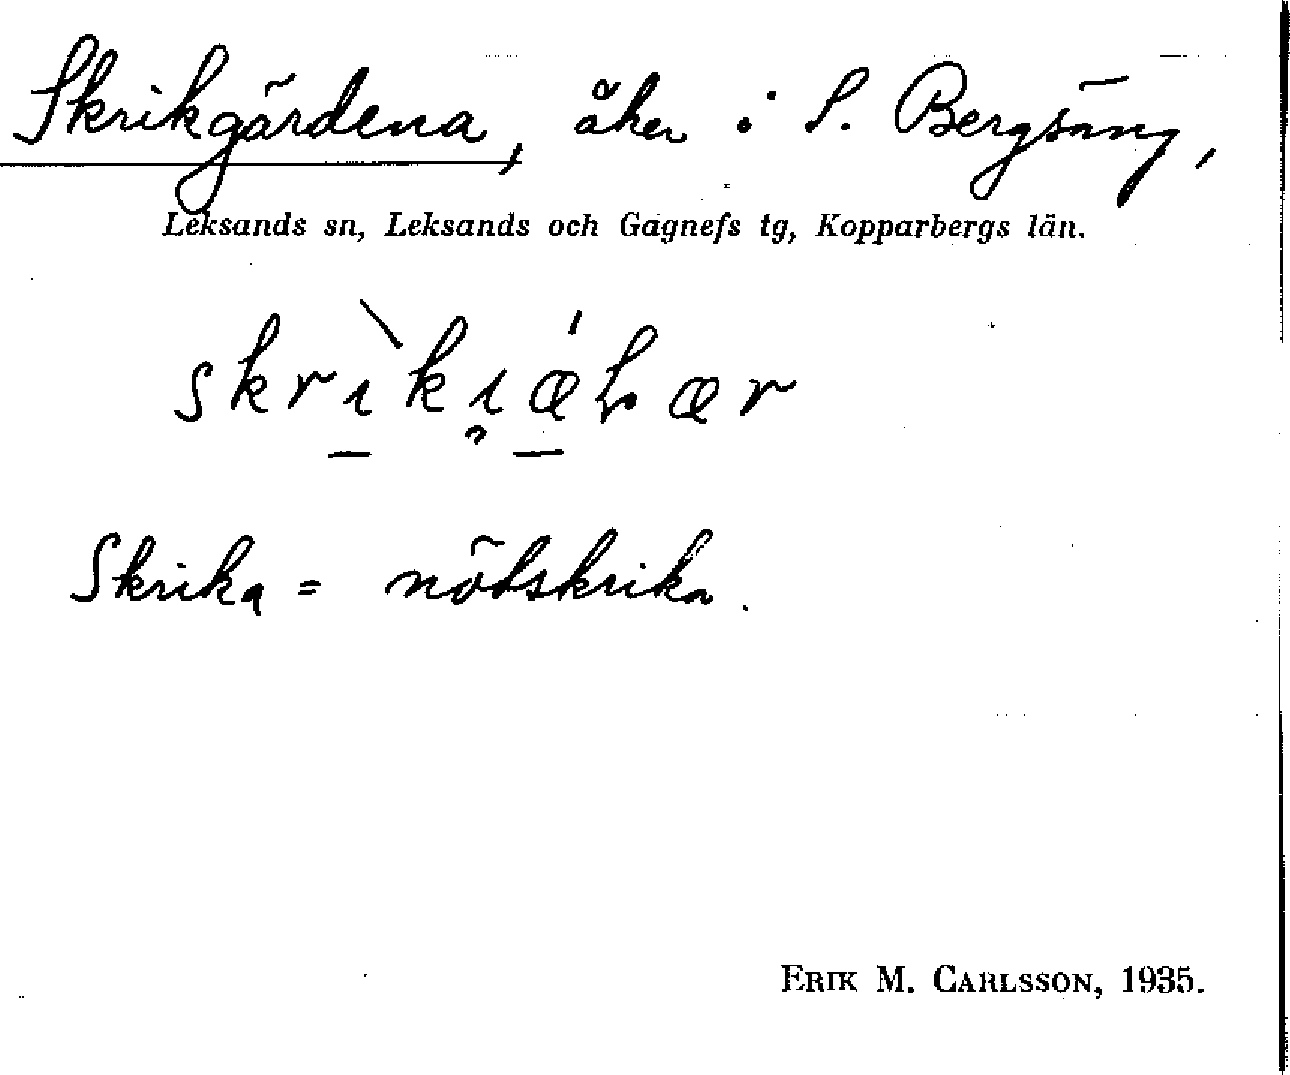 Skrikgärdena, åker i S. Bergsäng,
Leksands sn, Leksands och Gagnefs tg, Kopparbergs län.
Skrika = nötskrika.
ERIK M. CARLSSON, 1935.